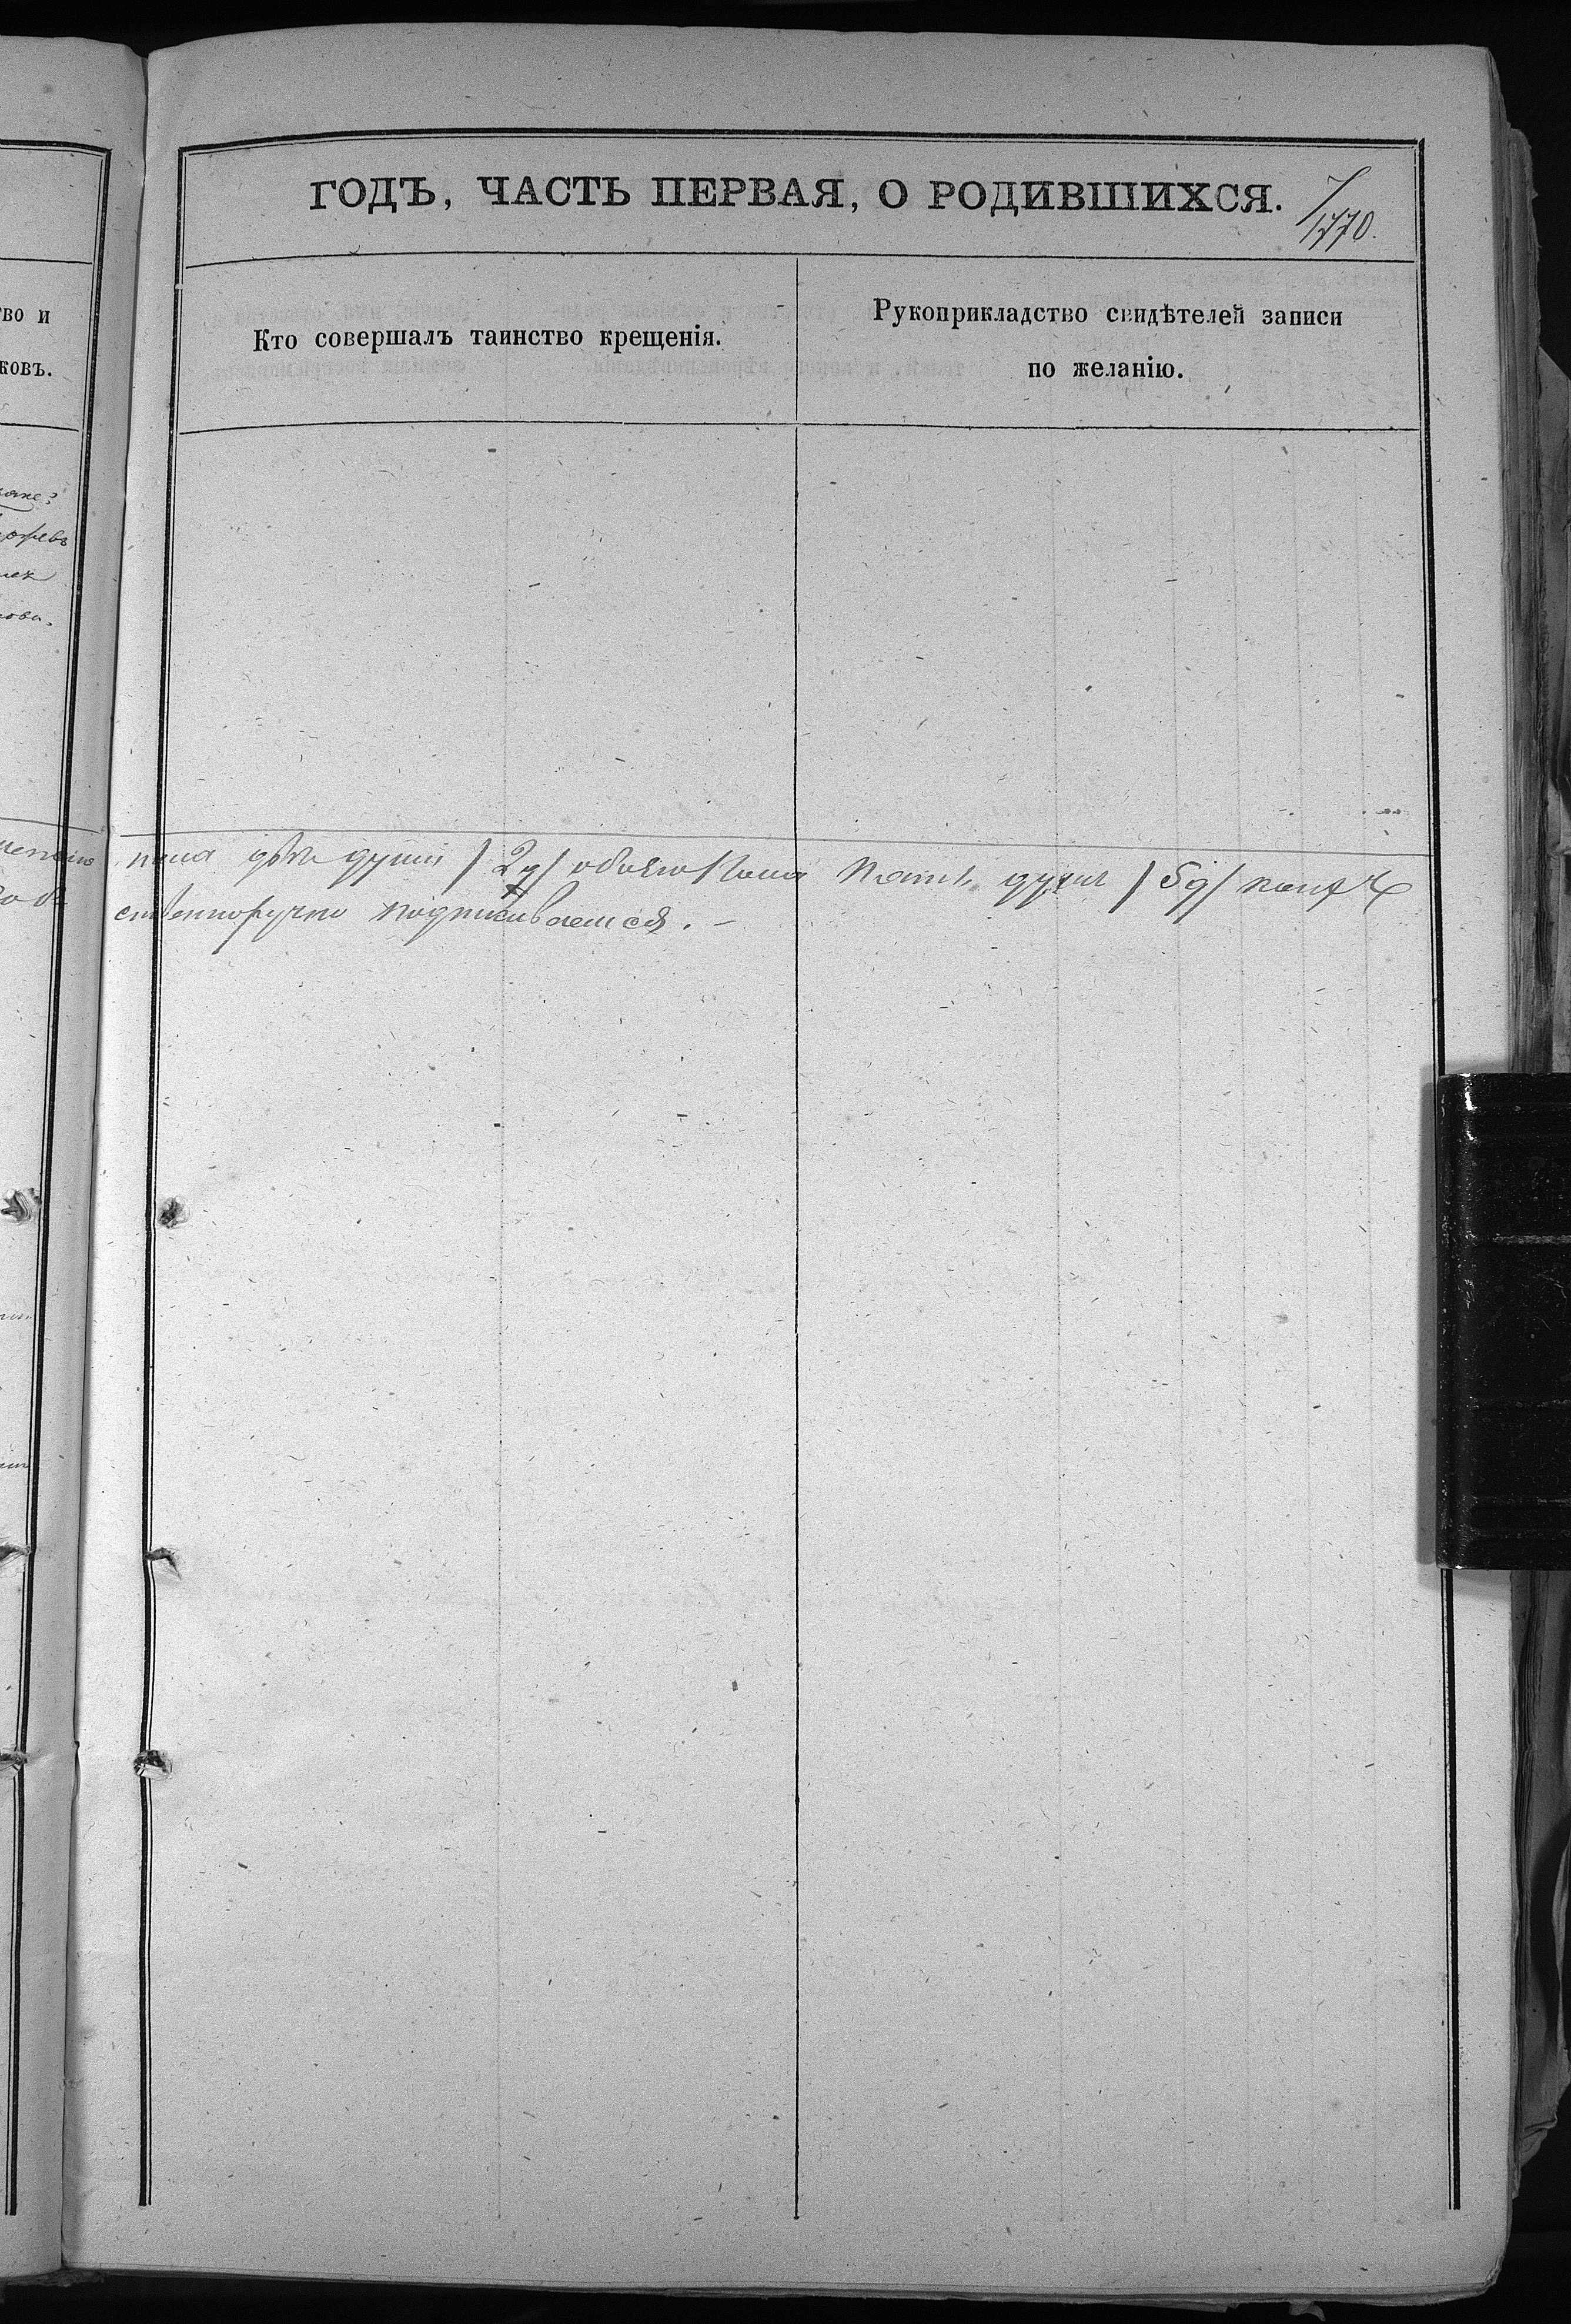 ГОДЪ, ЧАСТЬ ПЕРВАЯ, О РОДИВШИХСЯ.
1770.
во и
ковъ.
Кто совершалъ таинство крещенія.
Рукоприкладство свидѣтелей записи
по желанію.
пола двѣ души /2 д/ обоего пола пять душъ /5 д/
ственноручно подписываемся. –